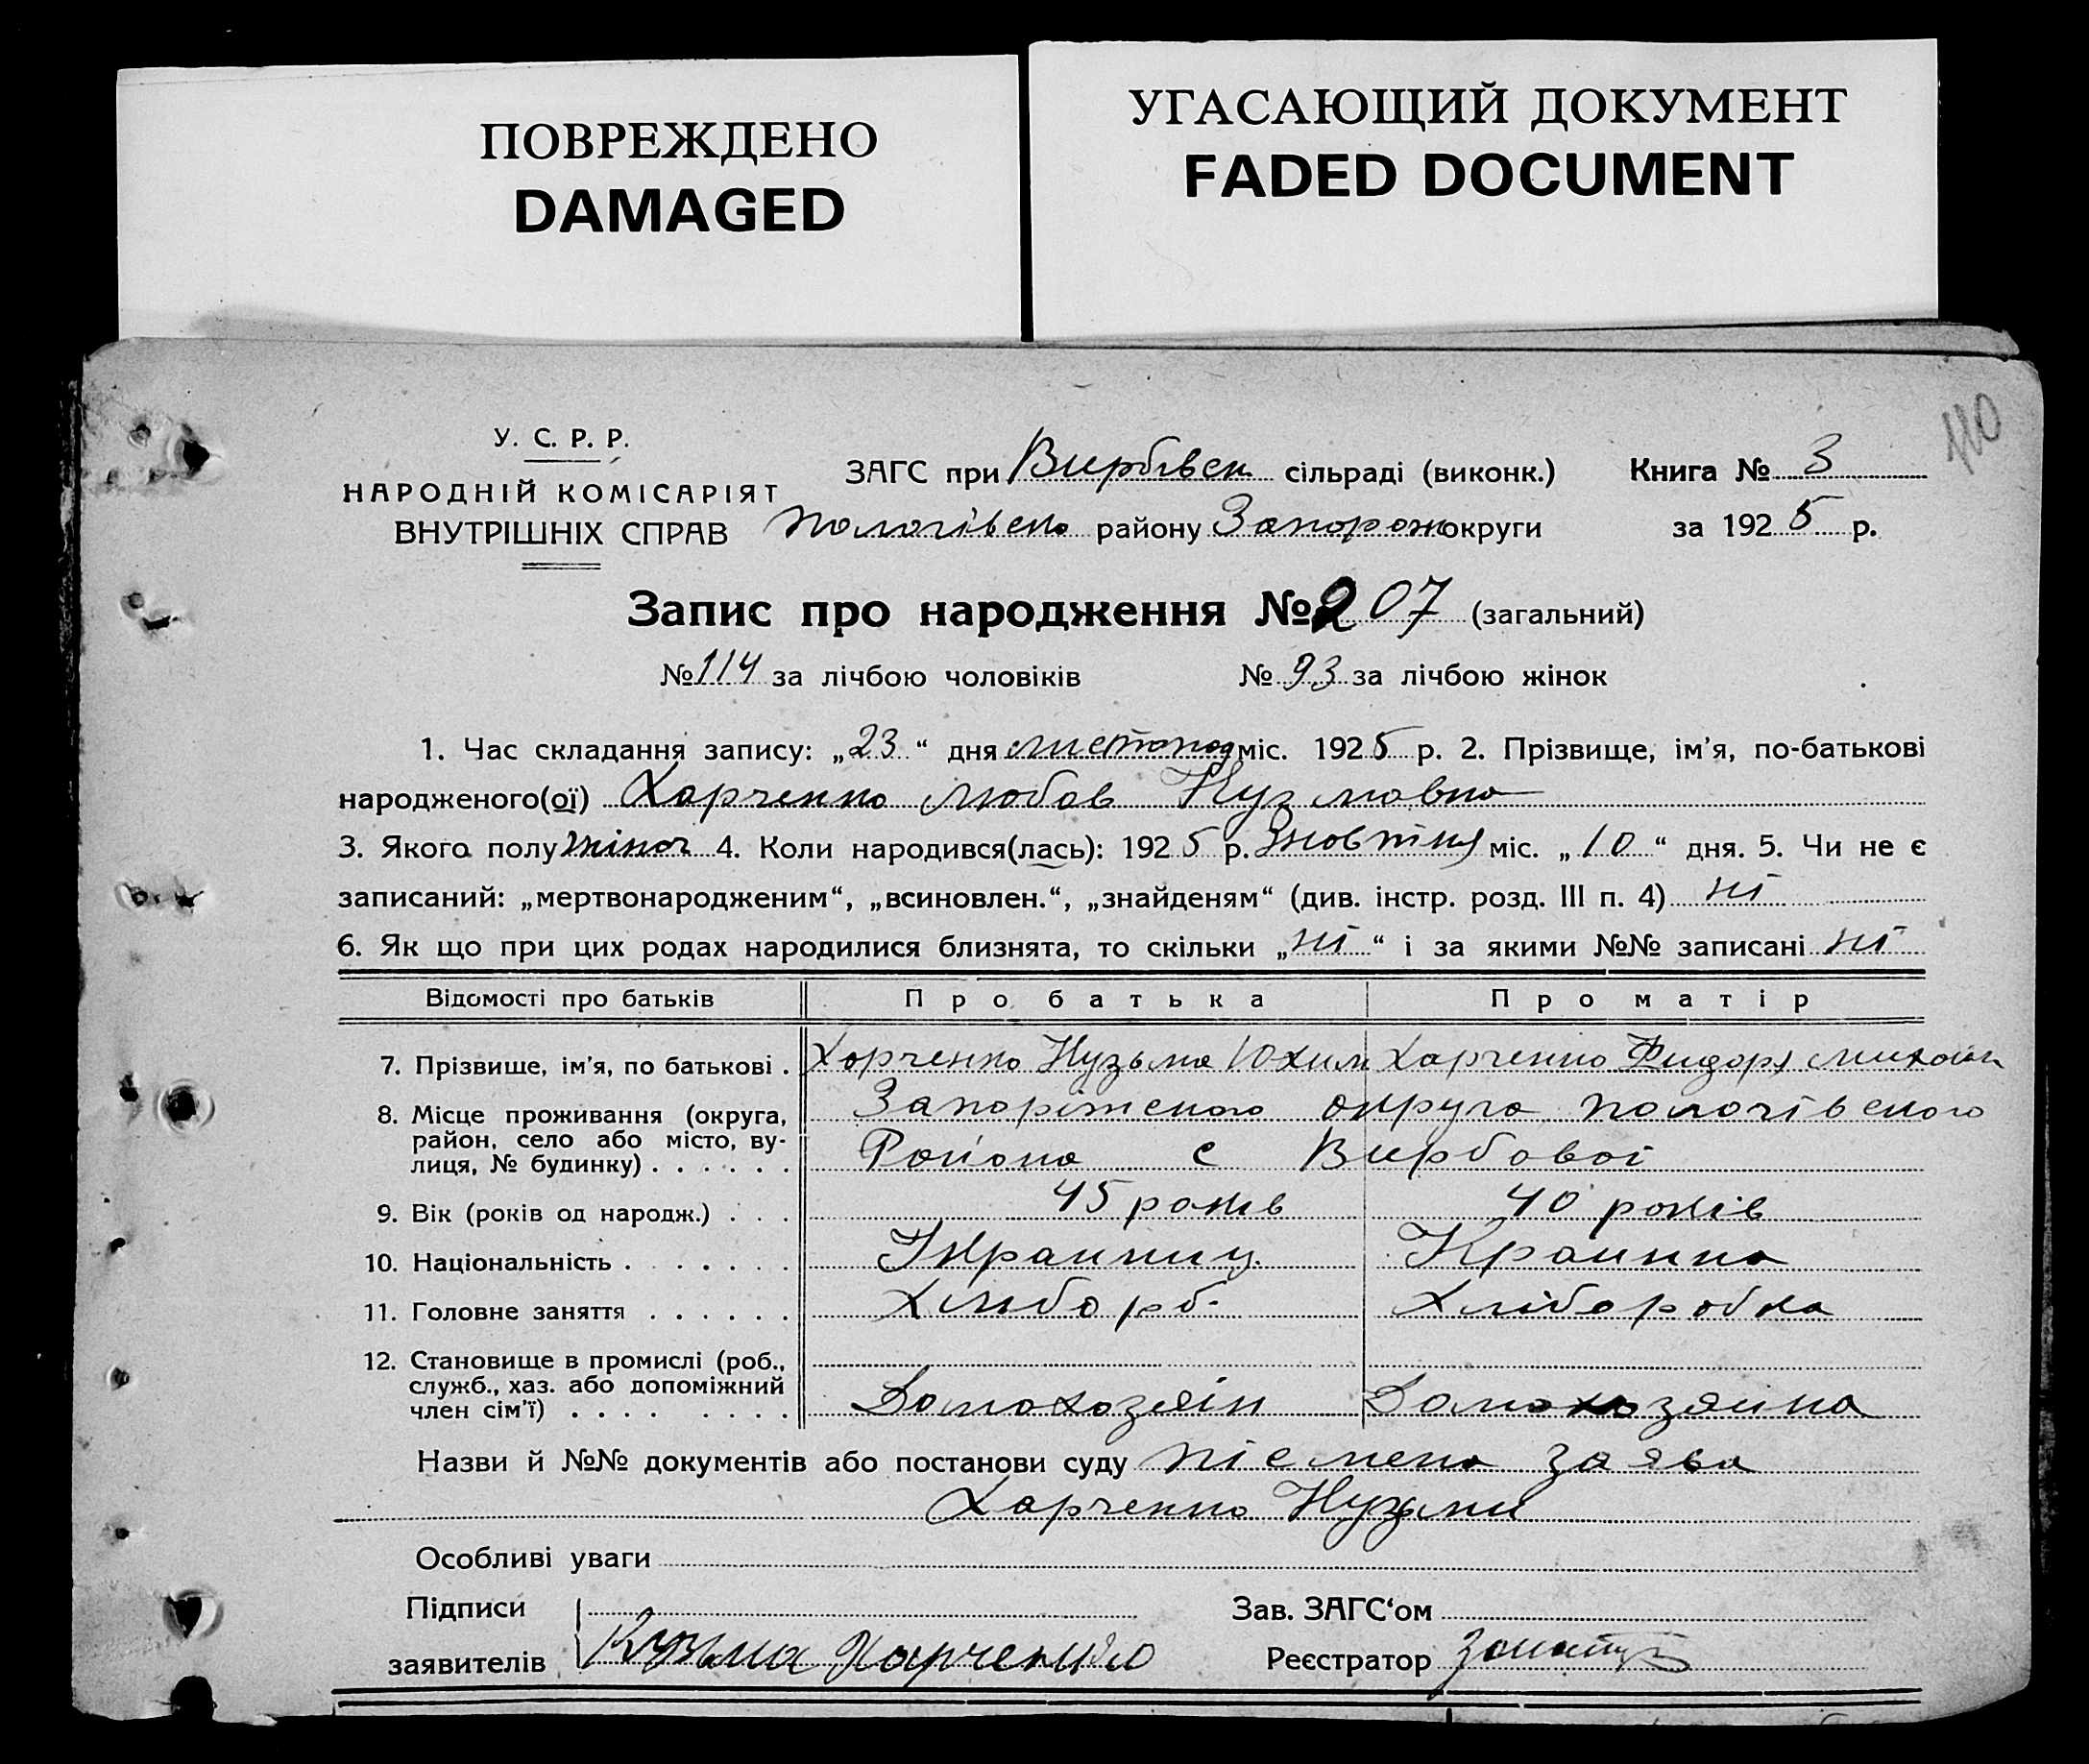 ПОВРЕЖДЕНО
DAMAGED
УГАСАЮЩИЙ ДОКУМЕНТ
FADED DOCUMENT
110
У. С. Р. Р.
НАРОДНІЙ КОМІСАРІЯТ
ВНУТРІШНІХ СПРАВ
ЗАГС при Вирбівск сільраді (виконк.) Книга № 3
Пологівсько району Запорож округи за 1925 р.
Запис про народження № 207 (загальний)
№ 114 за лічбою чоловіків № 93 за лічбою жінок
1. Час складання запису: „23“ дня листопад міс. 1925 р. 2. Прізвище, ім'я, по-батькові
народженого(ої) Харченко Любов Кузмовна
3. Якого полу жіноч 4. Коли народився(лась): 1925 р. Жовтня міс. „10“ дня. 5. Чи не є
записаний: „мертвонародженим“, „всиновлен.“, „знайденям“ (див. інстр. розд. III п. 4) ні
6. Як що при цих родах народилися близнята, то скільки „ні“ і за якими №№ записані ні
Відомості про батьків Про батька Про матір
7. Прізвище, ім'я, по батькові . Харченко Кузьма Юхим Харченко Фидоря Михайл
8. Місце проживання (округа, Запоріжского округа Пологівского
район, село або місто, ву-
лиця, № будинку) . . . . . . Района с Вирбової
9. Вік (років од народж.) . . . 45 років 40 років
10. Національність . . . . . . . Украинец. Краинка
11. Головне заняття . . . . . . Хлибороб. Хліборобка
12. Становище в промислі (роб.,
служб., хаз. або допоміжний
член сім'ї) . . . . . . . . Домохозяін Домохозяика
Назви й №№ документів або постанови суду пісмена заява
Харченко Кузьми
Особливі уваги
Підписи Зав. ЗАГС‘ом
заявителів Кузьма Харченко Реєстратор